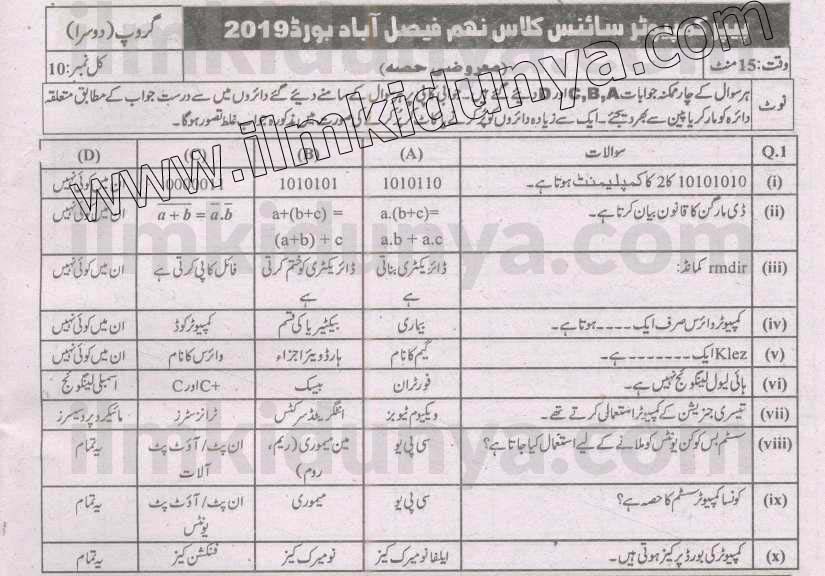 پیپر کمپیوٹر سائنس کلاس نہم فیصل آباد بورڈ 2019 گروپ (دوسرا)
وقت: 15 منٹ (معروضی حصہ) کل نمبر: 10
نوٹ ہر سوال کے چار ممکنہ جوابات C,B,A اور D دیئے گئے ہیں۔ جوابی کاپی پر ہر سوال کے سامنے دیئے گئے دائروں میں سے درست جواب کے مطابق متعلقہ
دائرہ کو مارکر یا پین سے بھر دیجئے۔ ایک سے زیادہ دائروں کو پُر کرنے یا کاٹ کر پُر کرنے کی صورت میں مذکورہ جواب غلط تصور ہوگا۔
www.ilmkidunya.com
Q.1 سوالات (A) (B) (C) (D)
(i) 10101010 کا 2 کا کمپلیمنٹ ہوتا ہے۔ 1010110 1010101 ان میں کوئی نہیں
(ii) ڈی مارگن کا قانون بیان کرتا ہے۔ a.(b+c)= a+(b+c) = a̅+̅b̅ = a̅.b̅ ان میں کوئی نہیں
a.b + a.c (a+b) + c
(iii) rmdir کمانڈ: ڈائریکٹری بناتی ڈائریکٹری کو ختم کرتی فائل کاپی کرتی ہے ان میں کوئی نہیں
ہے ہے
(iv) کمپیوٹر وائرس صرف ایک ---- ہوتا ہے۔ بیماری بیکٹیریا کی قسم کمپیوٹر کوڈ ان میں کوئی نہیں
(v) Klez ایک ------- ہے۔ گیم کا نام ہارڈ ویئر اجزاء وائرس کا نام ان میں کوئی نہیں
(vi) ہائی لیول لینگوئج نہیں ہے۔ فورٹران بیسک C اور C+ اسمبلی لینگوئج
(vii) تیسری جنریشن کے کمپیوٹر استعمال کرتے تھے۔ ویکیوم ٹیوبز انٹگریٹڈ سرکٹس ٹرانزسٹرز مائیکرو پروسیسرز
(viii) سسٹم بس کو کن یونٹس کو ملانے کے لیے استعمال کیا جاتا ہے؟ سی پی یو مین میموری (ریم، ان پٹ/آؤٹ پٹ یہ تمام
روم) آلات
(ix) کونسا کمپیوٹر سسٹم کا حصہ ہے؟ سی پی یو میموری ان پٹ/آؤٹ پٹ یہ تمام
یونٹس
(x) کمپیوٹر کی بورڈ پر کیز ہوتی ہیں۔ ایلفا نومیرک کیز نومیرک کیز فنکشن کیز یہ تمام